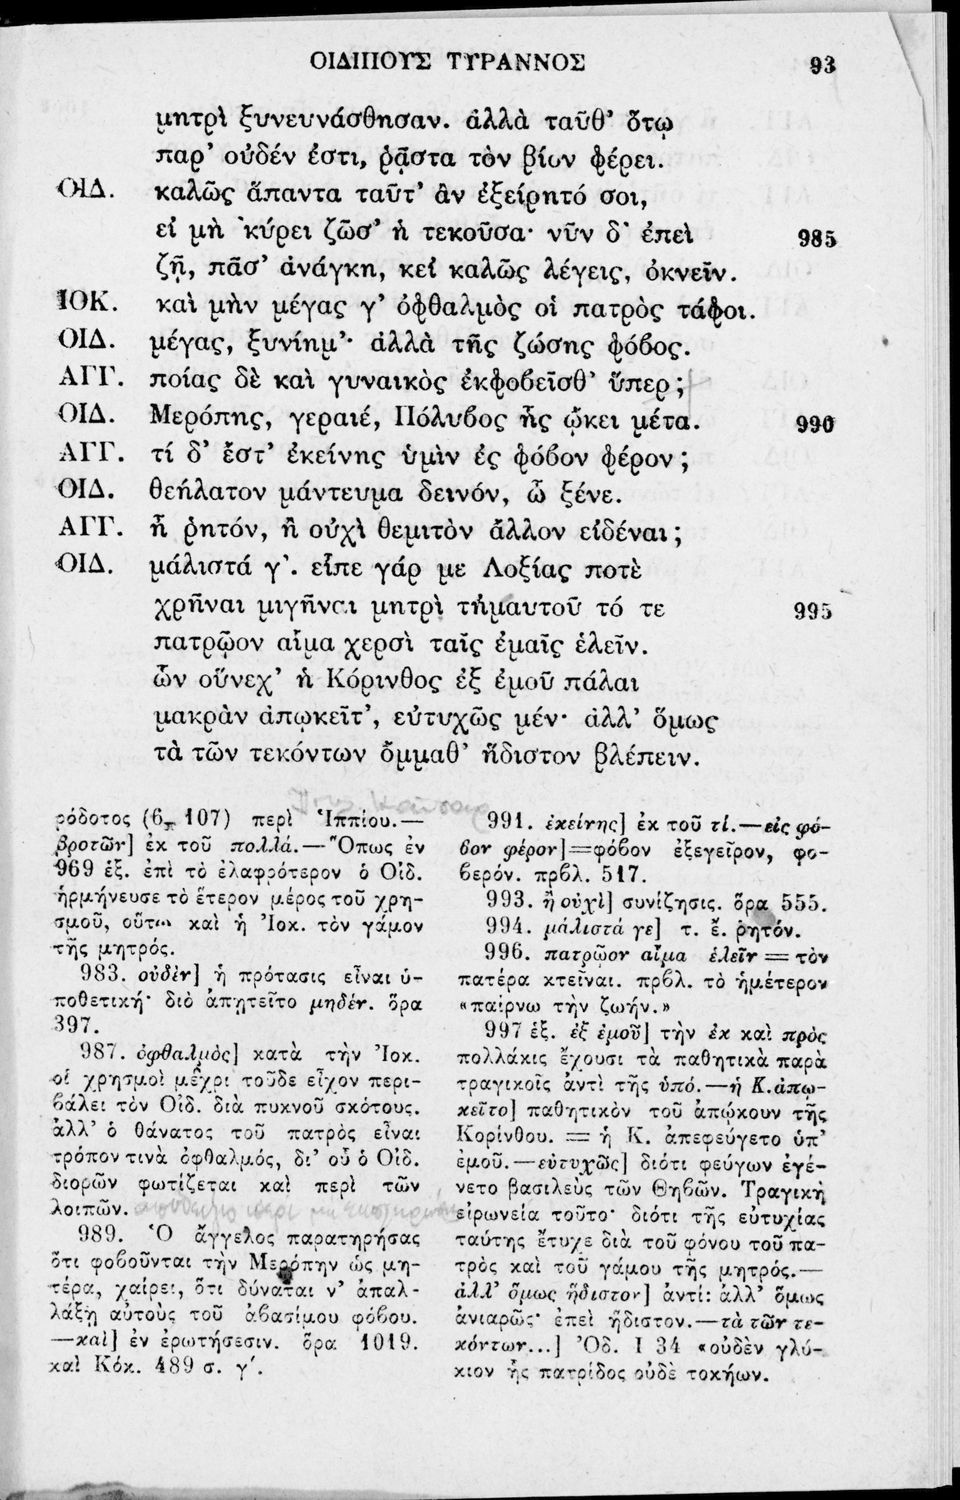 ΟΙΔΙΠΟΥΣ ΤΥΡΑΝΝΟΣ 93
μητρὶ ξυνευνάσθησαν. ἀλλὰ ταῦθ' ὅτῳ
παρ' οὐδέν ἐστι, ῥᾷστα τὸν βίον φέρει.
ΟΙΔ. καλῶς ἅπαντα ταῦτ' ἂν ἐξείρητό σοι,
εἰ μὴ 'κύρει ζῶσ' ἡ τεκοῦσα· νῦν δ' ἐπεὶ 985
ζῇ, πᾶσ' ἀνάγκη, κεἰ καλῶς λέγεις, ὀκνεῖν.
ΙΟΚ. καὶ μὴν μέγας γ' ὀφθαλμὸς οἱ πατρὸς τάφοι.
ΟΙΔ. μέγας, ξυνίημ'· ἀλλὰ τῆς ζώσης φόβος.
ΑΓΓ. ποίας δὲ καὶ γυναικὸς ἐκφοβεῖσθ' ὕπερ;
ΟΙΔ. Μερόπης, γεραιέ, Πόλυβος ἧς ᾤκει μέτα. 990
ΑΓΓ. τί δ' ἔστ' ἐκείνης ὑμὶν ἐς φόβον φέρον;
ΟΙΔ. θεήλατον μάντευμα δεινόν, ὦ ξένε.
ΑΓΓ. ἦ ῥητόν, ἢ οὐχὶ θεμιτὸν ἄλλον εἰδέναι;
ΟΙΔ. μάλιστά γ'. εἶπε γάρ με Λοξίας ποτὲ
χρῆναι μιγῆναι μητρὶ τἠμαυτοῦ τό τε 995
πατρῷον αἷμα χερσὶ ταῖς ἐμαῖς ἑλεῖν.
ὧν οὕνεχ' ἡ Κόρινθος ἐξ ἐμοῦ πάλαι
μακρὰν ἀπῳκεῖτ', εὐτυχῶς μέν· ἀλλ' ὅμως
τὰ τῶν τεκόντων ὄμμαθ' ἥδιστον βλέπειν.
ρόδοτος (6, 107) περὶ Ἱππίου.—
βροτῶν] ἐκ τοῦ πολλά.—Ὅπως ἐν
969 ἑξ. ἐπὶ τὸ ἐλαφρότερον ὁ Οἰδ.
ἡρμήνευσε τὸ ἕτερον μέρος τοῦ χρη-
σμοῦ, οὕτω καὶ ἡ Ἰοκ. τὸν γάμον
τῆς μητρός.
983. οὐδὲν] ἡ πρότασις εἶναι ὑ-
ποθετική· διὸ ἀπῃτεῖτο μηδέν. ὅρα
397.
987. ὀφθαλμὸς] κατὰ τὴν Ἰοκ.
οἱ χρησμοὶ μέχρι τοῦδε εἶχον περι-
βάλει τὸν Οἰδ. διὰ πυκνοῦ σκότους.
ἀλλ' ὁ θάνατος τοῦ πατρὸς εἶναι
τρόπον τινὰ ὀφθαλμός, δι' οὗ ὁ Οἰδ.
διορῶν φωτίζεται καὶ περὶ τῶν
λοιπῶν.
989. Ὁ ἄγγελος παρατηρήσας
ὅτι φοβοῦνται τὴν Μερόπην ὡς μη-
τέρα, χαίρει, ὅτι δύναται ν' ἀπαλ-
λάξῃ αὐτοὺς τοῦ ἀβασίμου φόβου.
—καὶ] ἐν ἐρωτήσεσιν. ὅρα 1019.
καὶ Κόκ. 489 σ. γ'.
991. ἐκείνης] ἐκ τοῦ τί.—εἰς φό-
βον φέρον]=φόβον ἐξεγεῖρον, φο-
βερόν. πρβλ. 517.
993. ἢ οὐχὶ] συνίζησις. ὅρα 555.
994. μάλιστά γε] τ. ἔ. ῥητόν.
996. πατρῷον αἷμα ἑλεῖν = τὸν
πατέρα κτεῖναι. πρβλ. τὸ ἡμέτερον
«παίρνω τὴν ζωήν.»
997 ἑξ. ἐξ ἐμοῦ] τὴν ἐκ καὶ πρὸς
πολλάκις ἔχουσι τὰ παθητικὰ παρὰ
τραγικοῖς ἀντὶ τῆς ὑπό.—ἡ Κ. ἀπῳ-
κεῖτο] παθητικὸν τοῦ ἀπῴκουν τῆς
Κορίνθου. = ἡ Κ. ἀπεφεύγετο ὑπ'
ἐμοῦ.—εὐτυχῶς] διότι φεύγων ἐγέ-
νετο βασιλεὺς τῶν Θηβῶν. Τραγικὴ
εἰρωνεία τοῦτο· διότι τῆς εὐτυχίας
ταύτης ἔτυχε διὰ τοῦ φόνου τοῦ πα-
τρὸς καὶ τοῦ γάμου τῆς μητρός.—
ἀλλ' ὅμως ἥδιστον] ἀντί: ἀλλ' ὅμως
ἀνιαρῶς· ἐπεὶ ἥδιστον.—τὰ τῶν τε-
κόντων...] Ὀδ. Ι 34 «οὐδὲν γλύ-
κιον ἧς πατρίδος οὐδὲ τοκήων.